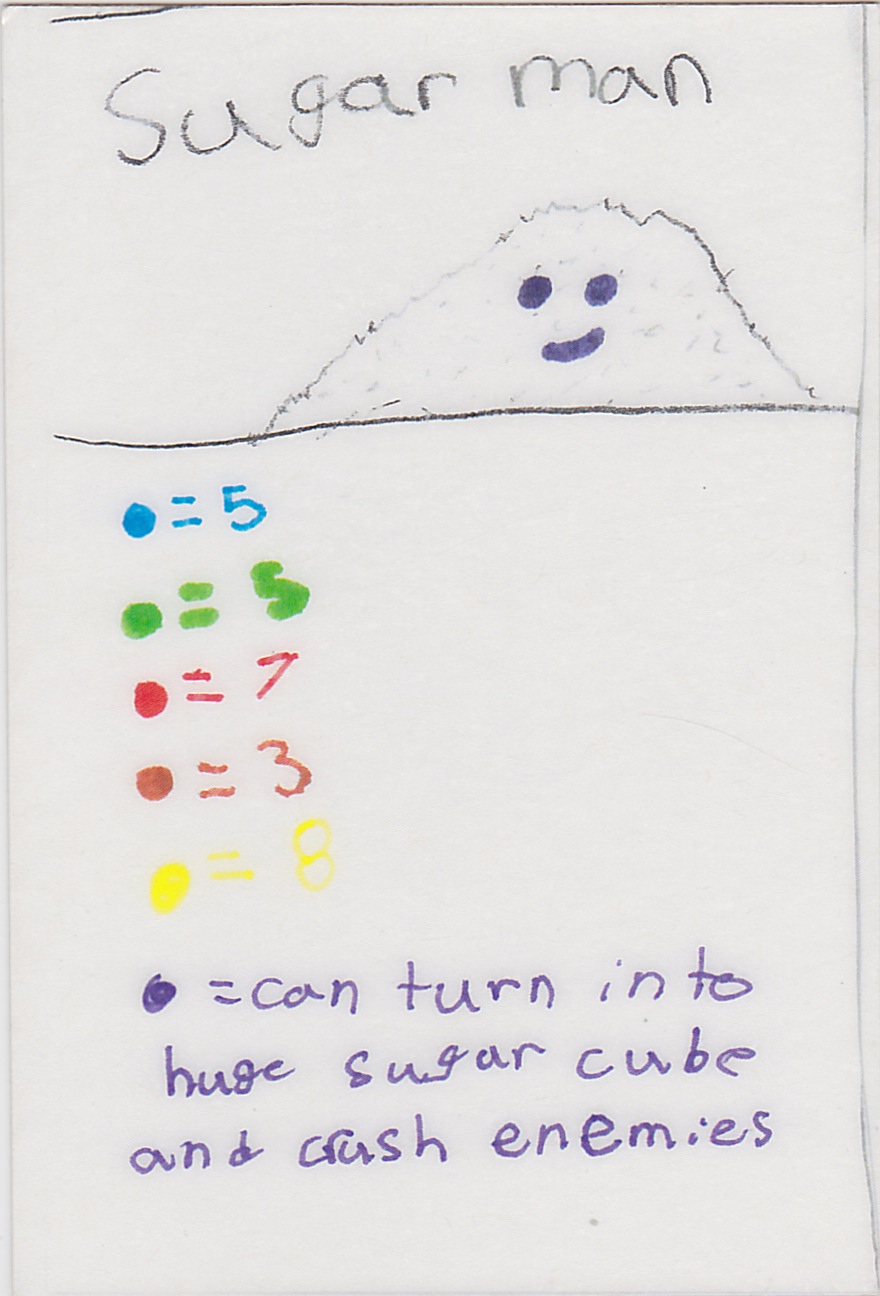 Sugar man
= 5
= 5
= 7
= 3
= 8
= can turn into
huge sugar cube
and crush enemies